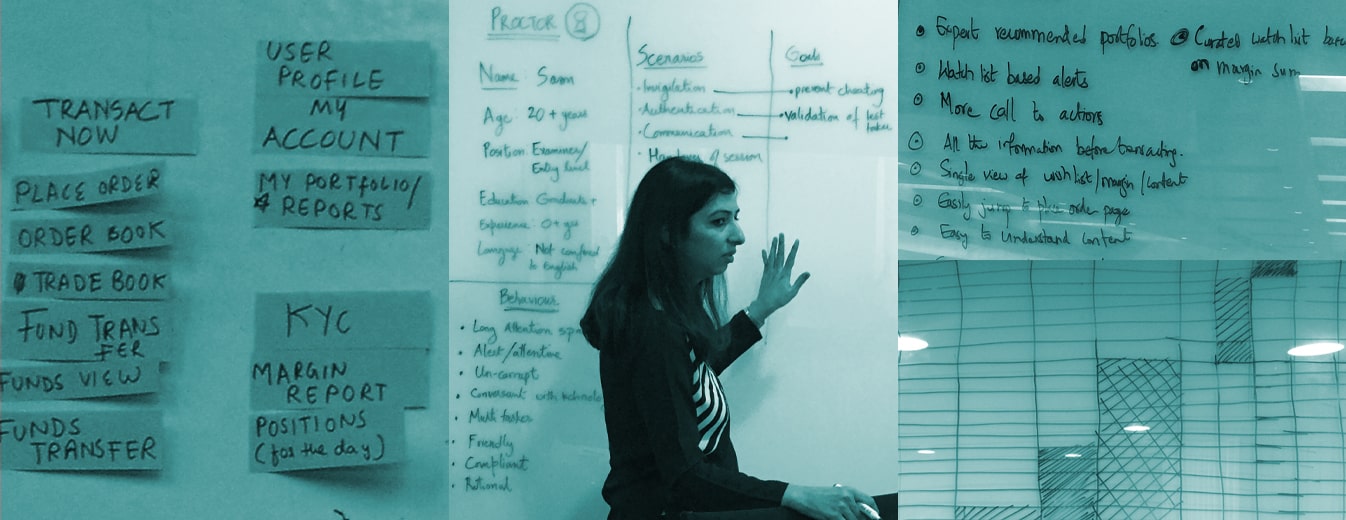 TRANSACT
NOW
PLACE ORDER
ORDER BOOK
TRADE BOOK
FUND TRANS
FER
FUNDS VIEW
FUNDS
TRANSFER
USER
PROFILE
MY
ACCOUNT
MY PORTFOLIO/
REPORTS
KYC
MARGIN
REPORT
POSITIONS
(for the day)
PROCTOR 8
Name:
Age: 20 + years
Position: Examiner/
Entry level
Education Graduate +
Experience: 0+ yrs
Language: Not confined
to English
Behaviour
• Long Attention
• Alert/attentive
• Un-corrupt
• Conversant with
• Multi tasker
• Friendly
• Compliant
• Rational
Scenarios
• Invigilation
• Authentication
• Communication
of session
Goals
• prevent cheating
• validation of test
taker
Expert recommended portfolios
Watch list based alerts
More call to actions
All the information before transacting.
Single view of watchlist/margin/content
Easily jump to place order page
Easy to understand content
Curated watch list
on margin